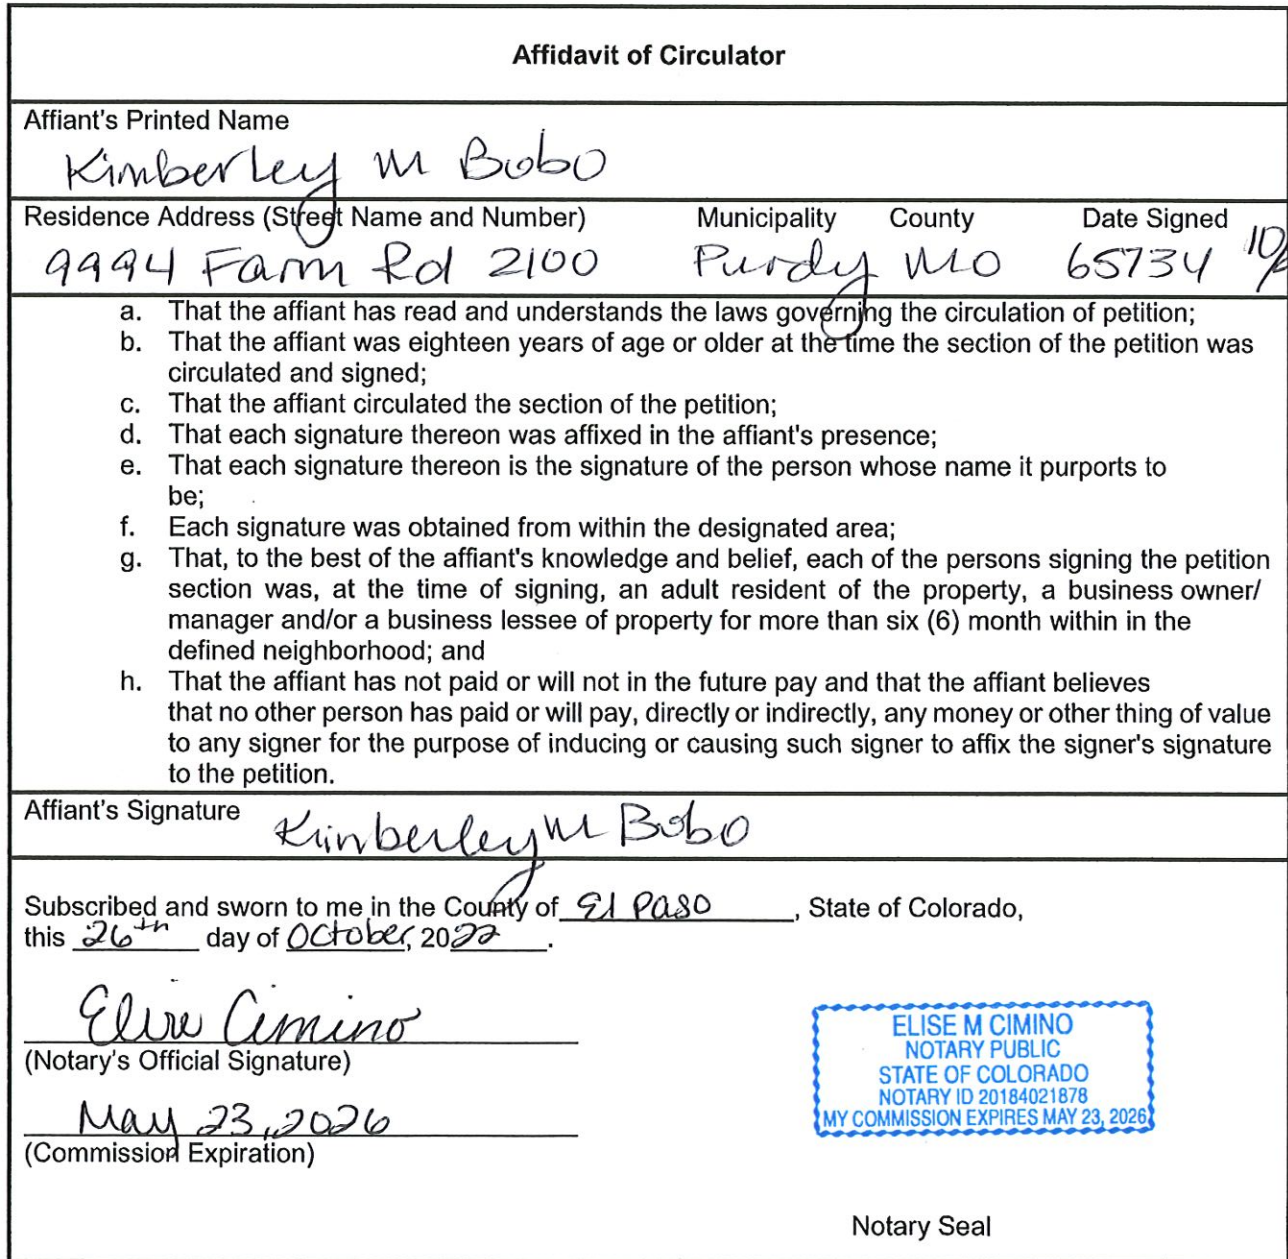 Affidavit of Circulator
Affiant's Printed Name
Kimberley M Bobo
Residence Address (Street Name and Number) Municipality County Date Signed
9994 Farm Rd 2100 Purdy MO 65734 10/2
a. That the affiant has read and understands the laws governing the circulation of petition;
b. That the affiant was eighteen years of age or older at the time the section of the petition was
circulated and signed;
c. That the affiant circulated the section of the petition;
d. That each signature thereon was affixed in the affiant's presence;
e. That each signature thereon is the signature of the person whose name it purports to
be;
f. Each signature was obtained from within the designated area;
g. That, to the best of the affiant's knowledge and belief, each of the persons signing the petition
section was, at the time of signing, an adult resident of the property, a business owner/
manager and/or a business lessee of property for more than six (6) month within in the
defined neighborhood; and
h. That the affiant has not paid or will not in the future pay and that the affiant believes
that no other person has paid or will pay, directly or indirectly, any money or other thing of value
to any signer for the purpose of inducing or causing such signer to affix the signer's signature
to the petition.
Affiant's Signature Kimberley M Bobo
Subscribed and sworn to me in the County of El Paso, State of Colorado,
this 26th day of October, 2022.
Elise Cimino
(Notary's Official Signature)
May 23, 2026
(Commission Expiration)
ELISE M CIMINO
NOTARY PUBLIC
STATE OF COLORADO
NOTARY ID 20184021878
MY COMMISSION EXPIRES MAY 23, 2026
Notary Seal